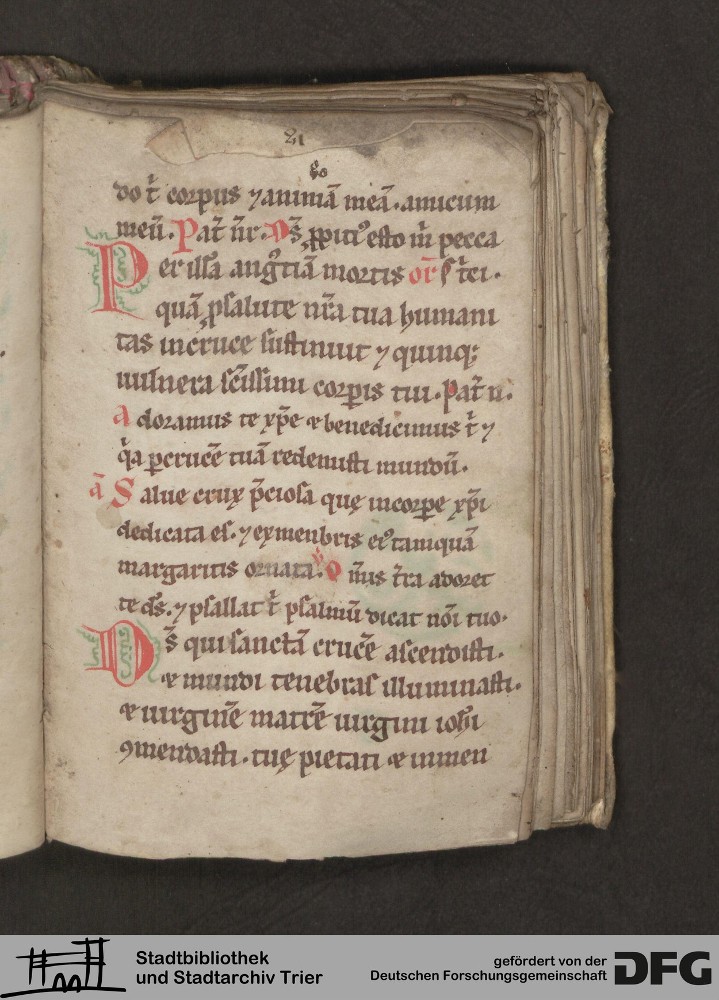 21
do t̄ corpus ⁊ animā meā · amicum
meū · Pat̄ nr̄ · Ds̄ ꝓpiti⁹ esto m̄ pecca
Per illā angͭiā mortis or̄ s t̄ei ·
quā ꝓ salute nr̄a tua humani
tas in cruce sustinuit ⁊ quinq;
uulnera sc̄issimi corꝑis tui · Pat̄ n ·
Adoramus te xp̄e & benedicimus t̄ ⁊
q̄a ꝑ crucē tuā redemisti mundū ·
a̅ Salue crux p̄ciosa quę in corpe xp̄i
dedicata es · ⁊ ex menbris ei⁹ tamquā
margaritis ornata · O m̄is t̄ra adoret
te ds̄ · ⁊ psallat t̄ psalmū dicat nōi tuo ·
Ds̄ qui sanctā crucē ascendisti ·
& mundi tenebras illuminasti ·
& uirginē matrē uirgini ioh̄i
ꝯmendasti · tuę pietati & inmen
Stadtbibliothek
und Stadtarchiv Trier
gefördert von der
Deutschen Forschungsgemeinschaft
DFG